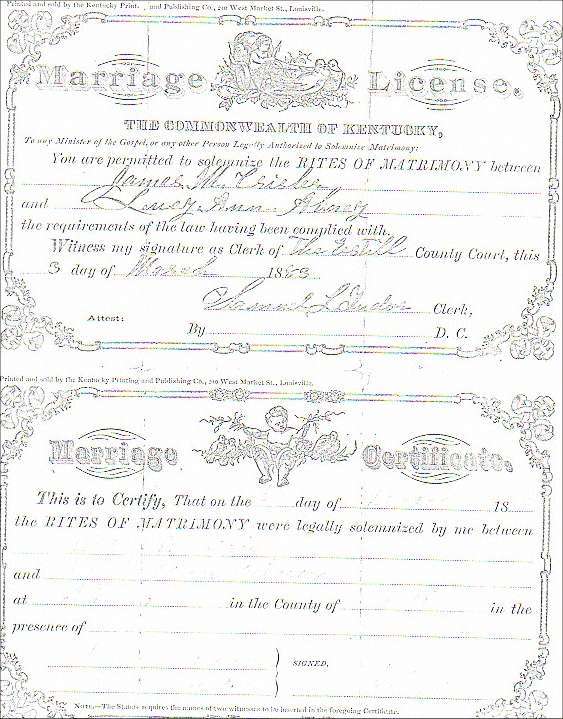 Printed and sold by the Kentucky Print. and Publishing Co., 210 West Market St., Louisville.
Marriage License.
THE COMMONWEALTH OF KENTUCKY,
To any Minister of the Gospel, or any other Person Legally Authorized to Solemnize Matrimony:
You are permitted to solemnize the RITES OF MATRIMONY between
James M
and Lucy Ann
the requirements of the law having been complied with.
Witness my signature as Clerk of The Estill County Court, this
3 day of March 1883
Samuel L Clerk,
Attest:
By D. C.
Printed and sold by the Kentucky Printing and Publishing Co., 210 West Market St., Louisville.
Marriage Certificate.
This is to Certify, That on the day of 18
the RITES OF MATRIMONY were legally solemnized by me between
and
at in the County of in the
presence of
SIGNED.
NOTE.—The Statute requires the names of two witnesses to be inserted in the foregoing Certificate.